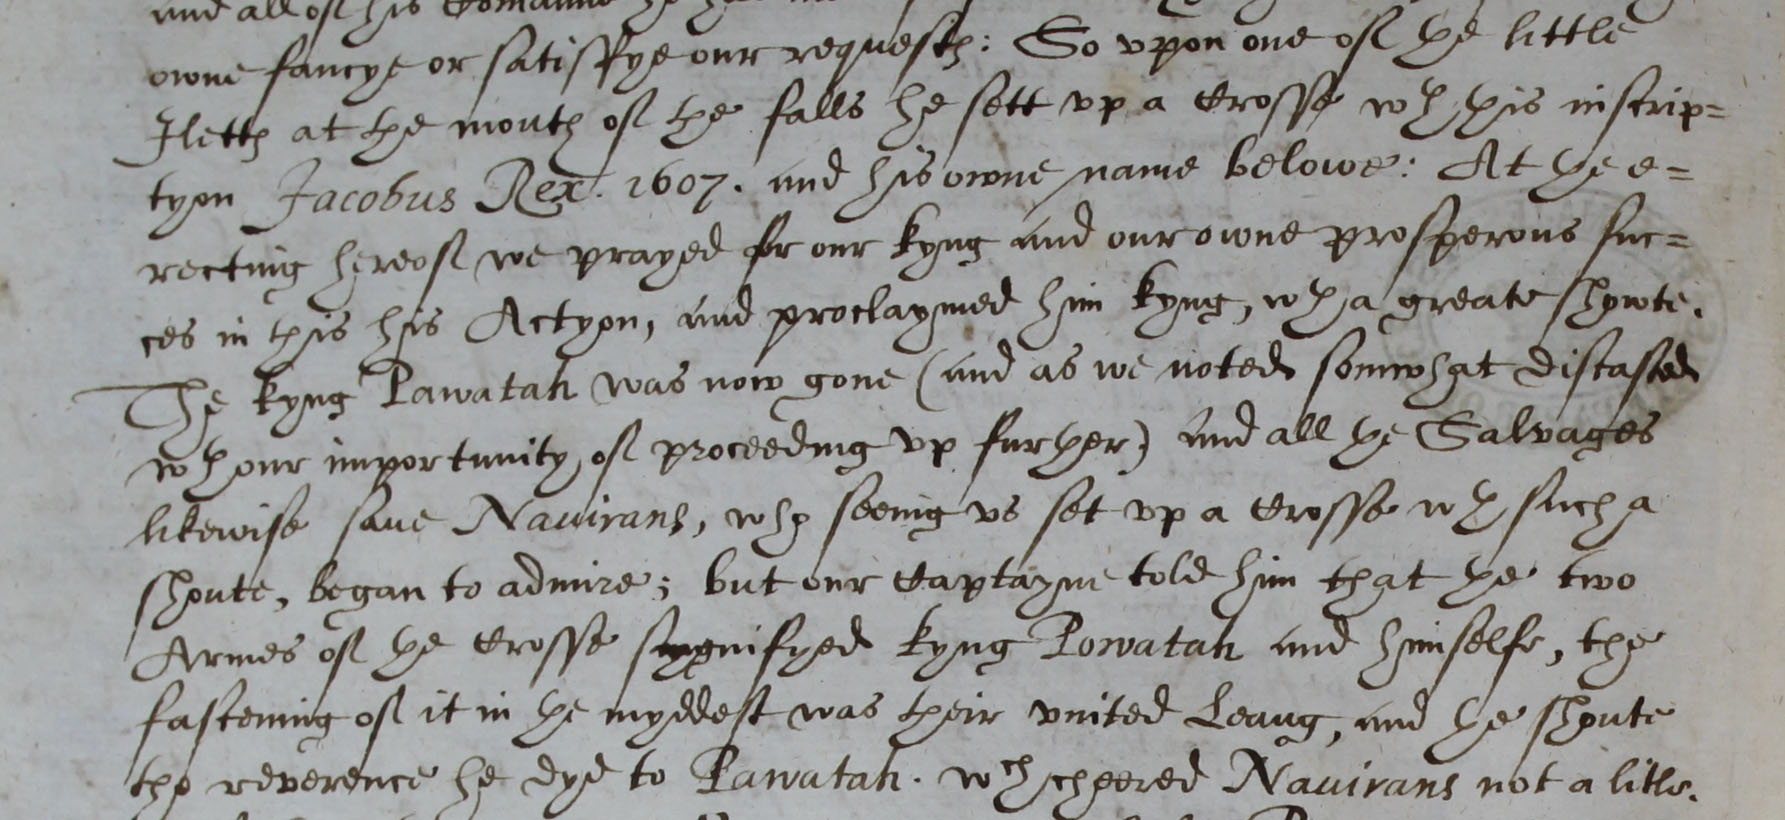 and all of his
owne fancye or satisffye our requests: So vpon one of ye little
Iletts at the mouth of the falls he sett vp a Crosse wth this inscrip=
tyon Jacobus Rex. 1607. and his owne name belowe: At ye e=
recting hereof we prayed for our kyng and our owne prosperous suc=
ces in this his Actyon, and proclaymed him kyng, wth a greate showte.
The kyng Pawatah was now gone (and as we noted somwhat distasted
wth our importunity of proceeding vp further) and all ye Salvages
likewise saue Nauirans, who seeing vs set vp a Crosse wth such a
shoute, began to admire; but our Captayne told him that ye two
Armes of ye Crosse signifyed kyng Powatah and himselfe, the
fastening of it in ye myddest was their vnited Leaug, and ye shoute
the reverence he dyd to Pawatah. wch cheered Nauirans not a litle.